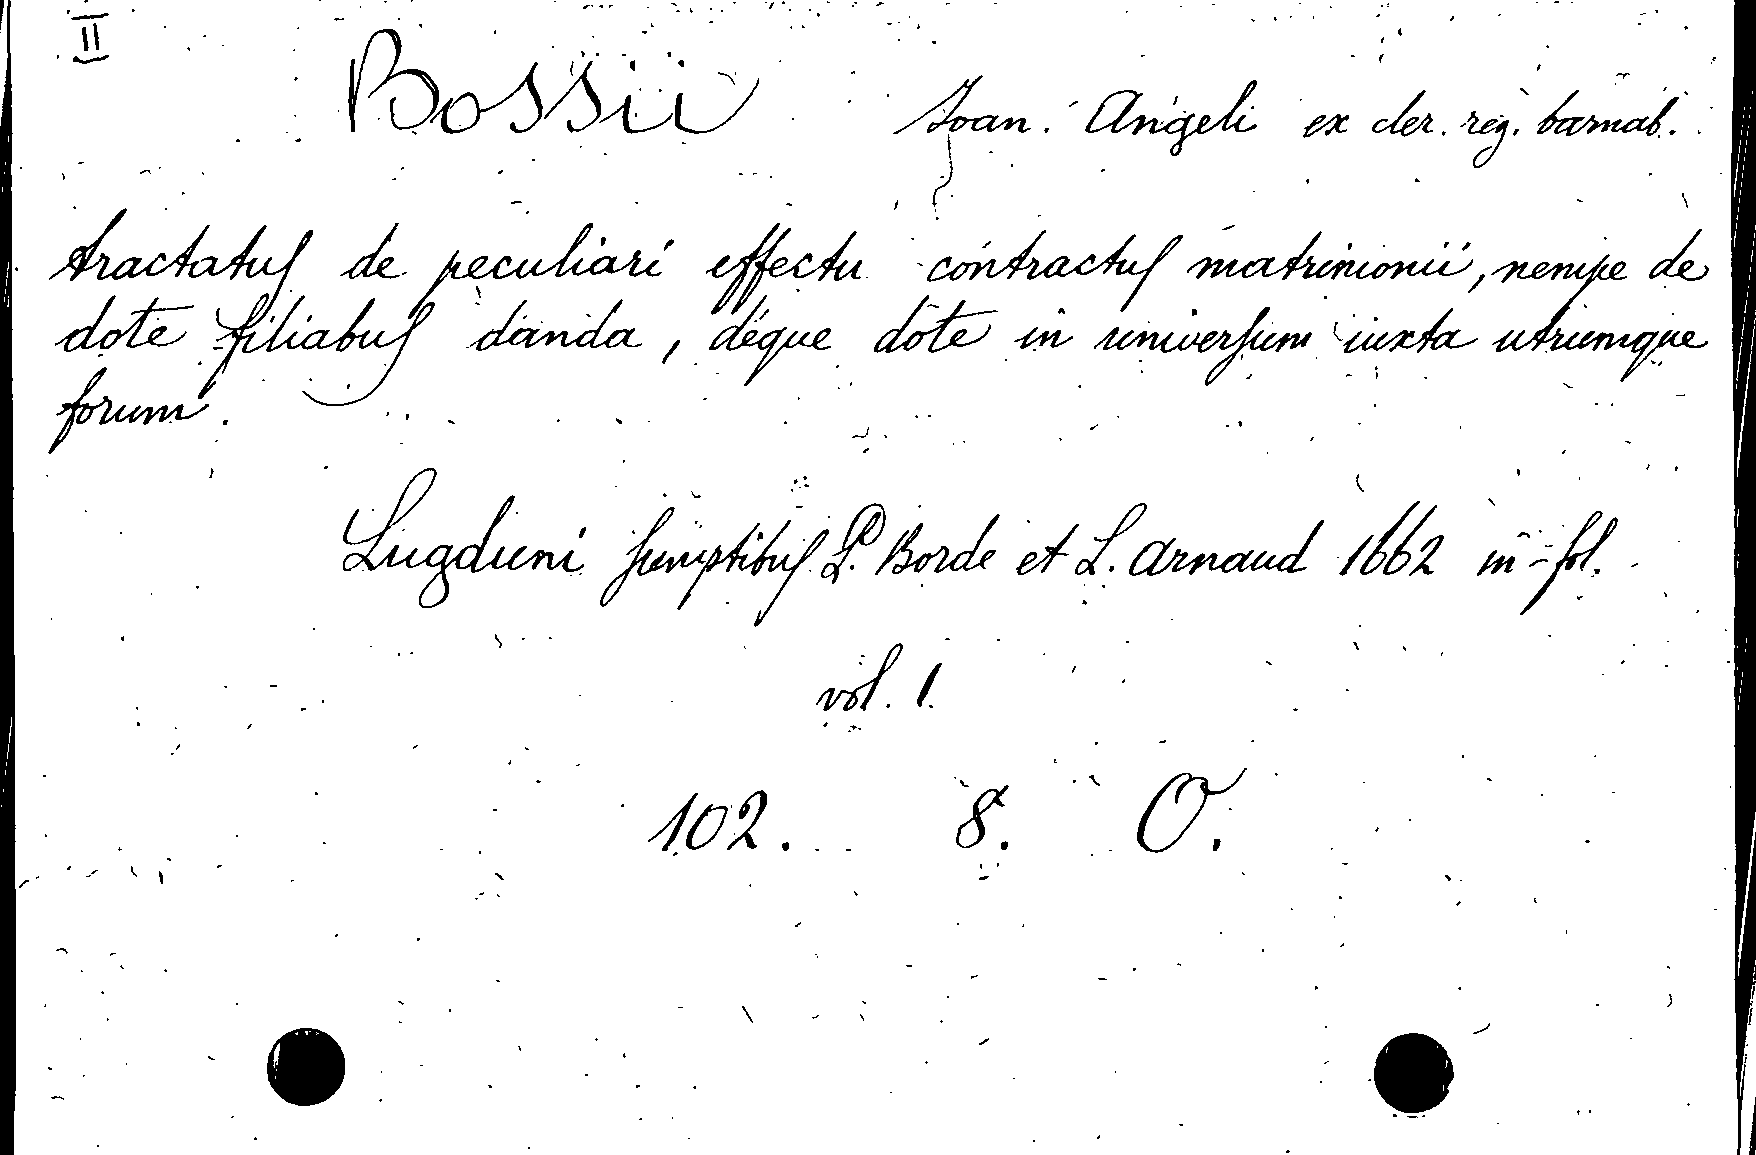 II
Bossii Joan. Angeli ex cler. reg. barnab.
tractatus de peculiari effectu contractus matrimonii, nempe de
dote filiabus danda, déque dote in universum iuxta utrumque
forum.
Lugduni sumptibus P. Borde et L. Arnaud 1662 in-fol.
vol. 1.
102. 8. O.